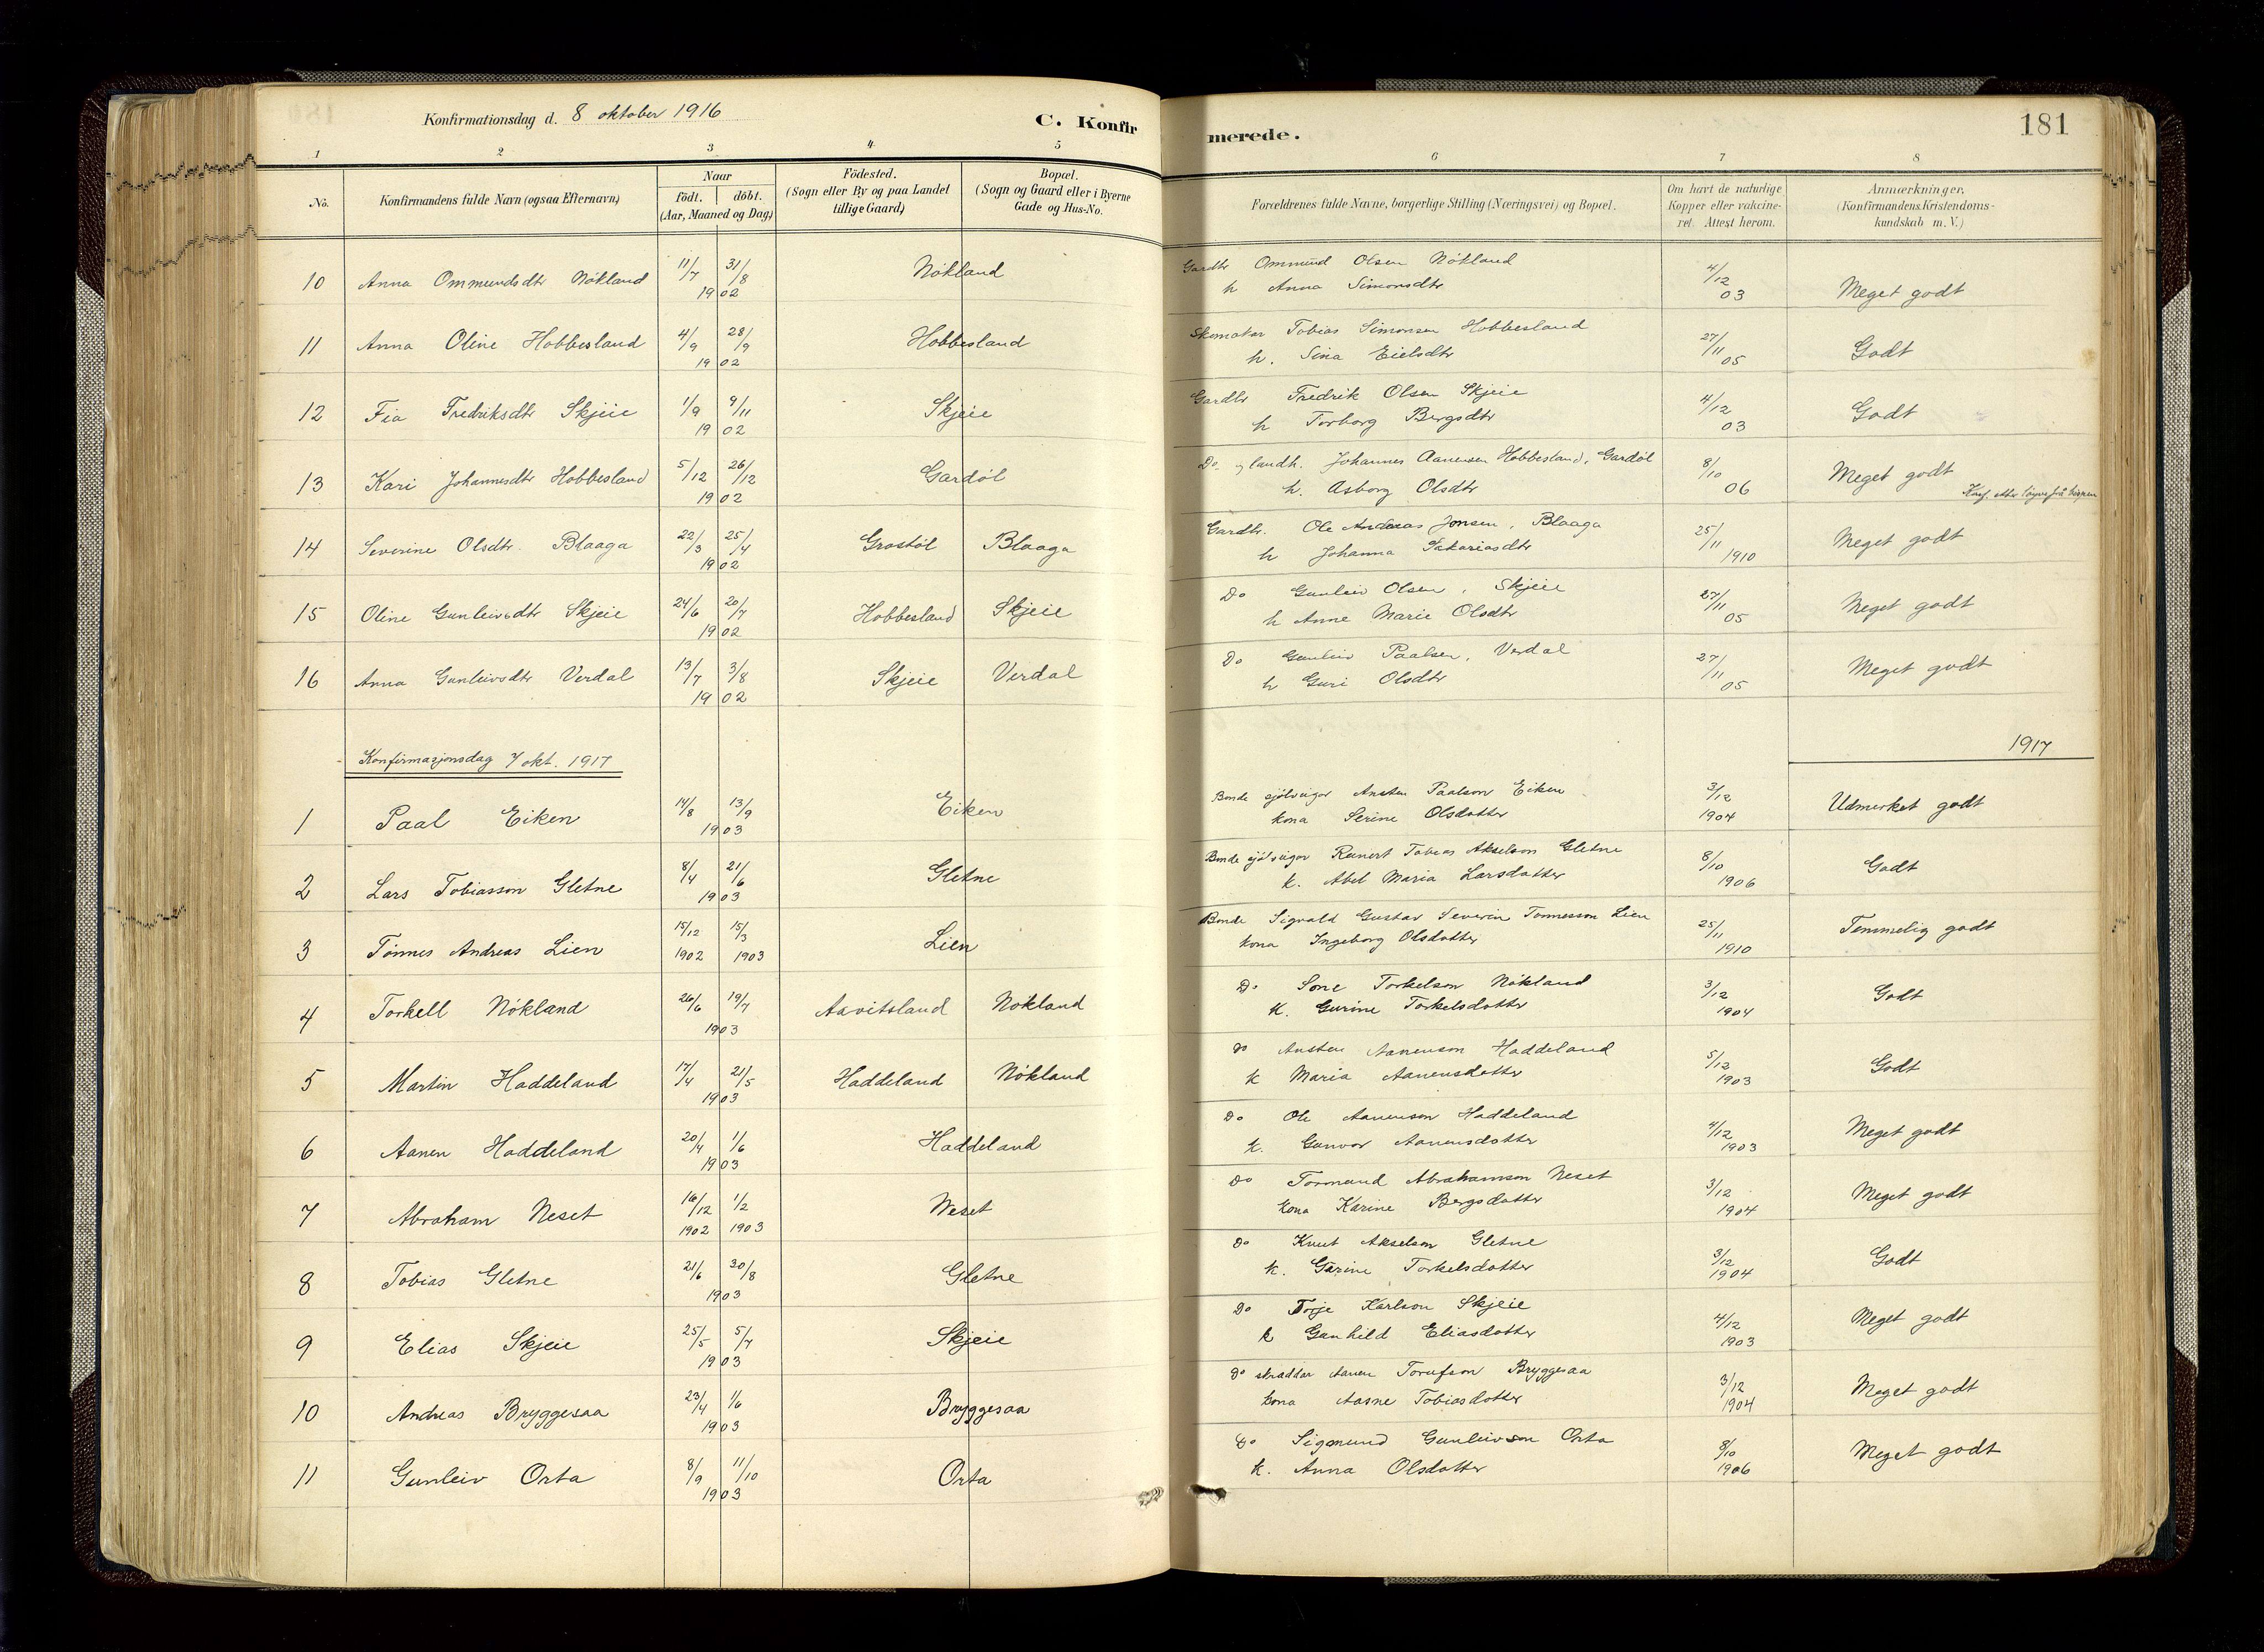 Konfirmationsdag d. 8 oktober 1916
C. Konfirmerede.
181
1 2 3 4 5 6 7 8
No.
Konfirmandens fulde Navn (ogsaa Efternavn)
Naar
födt. döbt.
(Aar, Maaned og Dag)
Födested.
(Sogn eller By og paa Landet
tillige Gaard)
Bopæl.
(Sogn og Gaard eller i Byerne
Gade og Hus-No.
Forældrenes fulde Navne, borgerlige Stilling (Næringsvei) og Bopæl.
Om havt de naturlige
Kopper eller vakcine-
ret. Attest herom.
Anmærkninger.
(Konfirmandens Kristendoms-
kundskab m. V.)
10 Anna Ommundsdtr Nökland 11/7 31/8 1902 Nökland Gardbr Ommund Olsen Nökland 4/12 03 Meget godt
h Anna Simonsdtr
11 Anna Oline Hobbesland 4/9 28/9 1902 Hobbesland Skomakar Tobias Simonsen Hobbesland 27/11 05 Godt
h. Sina Eielsdtr
12 Fia Fredriksdtr Skjeie 1/9 9/11 1902 Skjeie Gardbr Fredrik Olsen Skjeie 4/12 03 Godt
h Torborg Bergsdtr
13 Kari Johannesdtr Hobbesland 5/12 26/12 1902 Gardöl Do. landh. Johannes Aanensen Hobbesland, Gardöl 8/10 06 Meget godt
h. Asborg Olsdtr
14 Severine Olsdtr. Blaaga 22/3 25/4 1902 Grostöl Blaaga Gardbr. Ole Andreas Jonsen, Blaaga 25/11 1910 Meget godt
h Johanna Sakariasdtr
15 Oline Gunleivsdtr Skjeie 24/6 20/7 1902 Hobbesland Skjeie Do Gunleiv Olsen, Skjeie 27/11 05 Meget godt
h Anne Marie Olsdtr
16 Anna Gunleivsdtr Verdal 13/7 3/8 1902 Skjeie Verdal Do Gunleiv Paalsen, Verdal 27/11 05 Meget godt
h Guri Olsdtr
Konfirmasjonsdag 7 okt. 1917
1917
1 Paal Eiken 14/8 13/9 1903 Eiken Bonde sjölveigar Ansten Paalson Eiken 3/12 1904 Udmerket godt
kona Serine Olsdotter
2 Lars Tobiasson Gletne 8/4 21/6 1903 Gletne Bonde sjölveigar Reinert Tobias Akselson Gletne 8/10 1906 Godt
k. Abel Maria Larsdotter
3 Tönnes Andreas Lien 15/12 1902 15/3 1903 Lien Bonde Sigvald Gustav Severin Tonnesson Lien 25/11 1910 Temmelig godt
kona Ingeborg Olsdotter
4 Torkell Nökland 26/6 19/7 1903 Aavitsland Nökland Do Sone Torkelson Nökland 3/12 1904 Godt
k. Gurine Torkelsdotter
5 Martin Haddeland 17/4 21/5 1903 Haddeland Nökland Do Ansten Aanenson Haddeland 5/12 1903 Godt
k Maria Aanensdotter
6 Aanen Haddeland 20/4 1/6 1903 Haddeland Do Ole Aanenson Haddeland 4/12 1903 Meget godt
k. Gunvor Aanensdotter
7 Abraham Neset 16/12 1902 1/2 1903 Neset Do Tormund Abrahamson Neset 3/12 1904 Meget godt
kona Karine Bergsdotter
8 Tobias Gletne 21/6 30/8 1903 Gletne Do Knut Akselson Gletne 3/12 1904 Godt
k. Gurine Torkelsdotter
9 Elias Skjeie 25/5 5/7 1903 Skjeie Do Torje Karlson Skjeie 4/12 1903 Meget godt
k Gunhild Eliasdotter
10 Andreas Bryggesaa 23/4 1/6 1903 Bryggesaa Do skraddar Aanen Torufson Bryggesaa 3/12 1904 Meget godt
kona Aasne Tobiasdotter
11 Gunleiv Orta 8/9 11/10 1903 Orta Do Sigmund Gunleivson Orta 8/10 1906 Meget godt
k. Anna Olsdotter